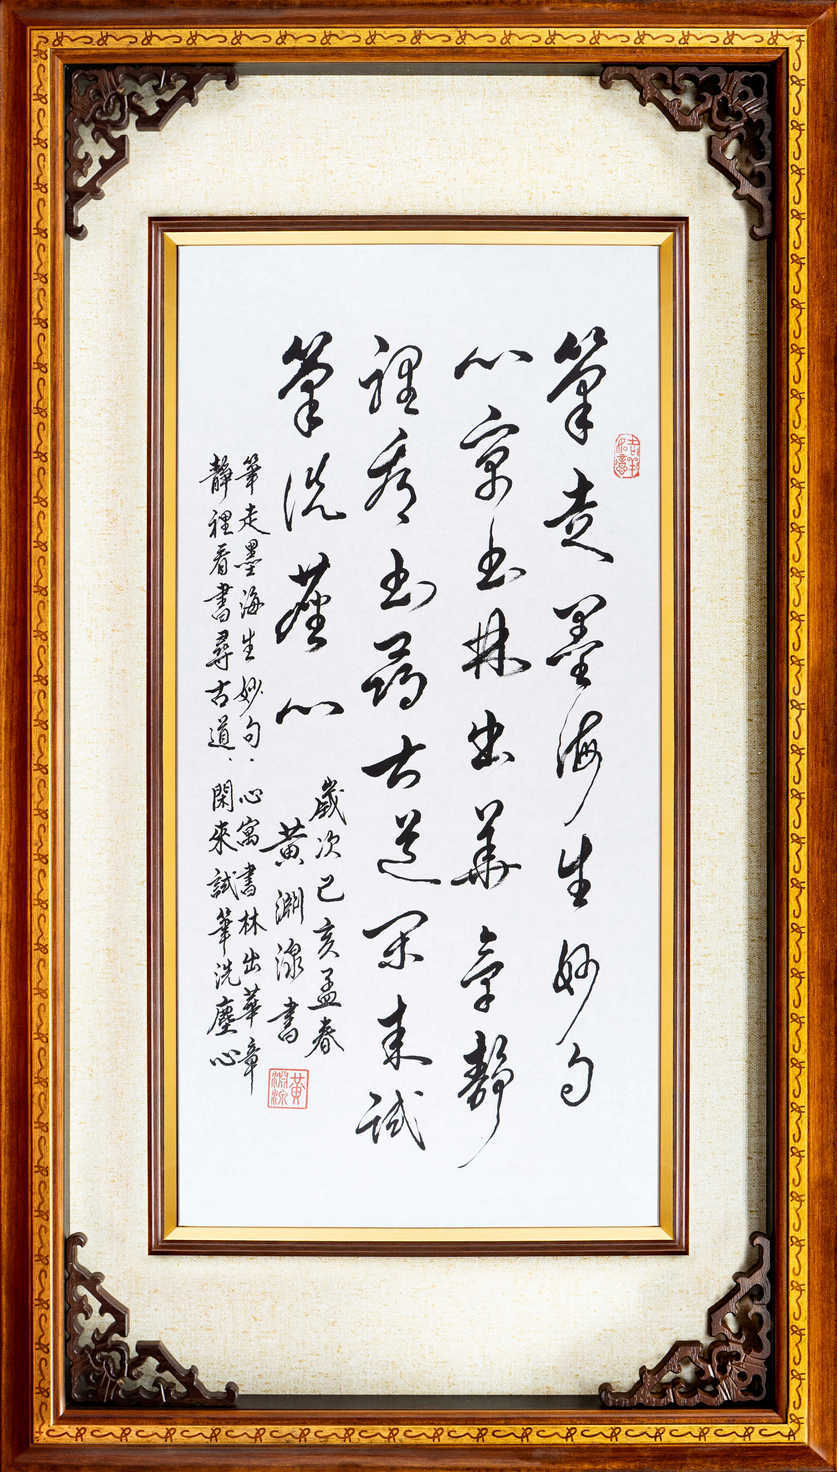 吉祥如意
筆走墨海生妙句
心寓書林出華章靜
裡看書尋古道閑來試
筆洗塵心
歲次己亥孟春
黃淵書
筆走墨海生妙句、心寓書林出華章
靜裡看書尋古道、閑來試筆洗塵心